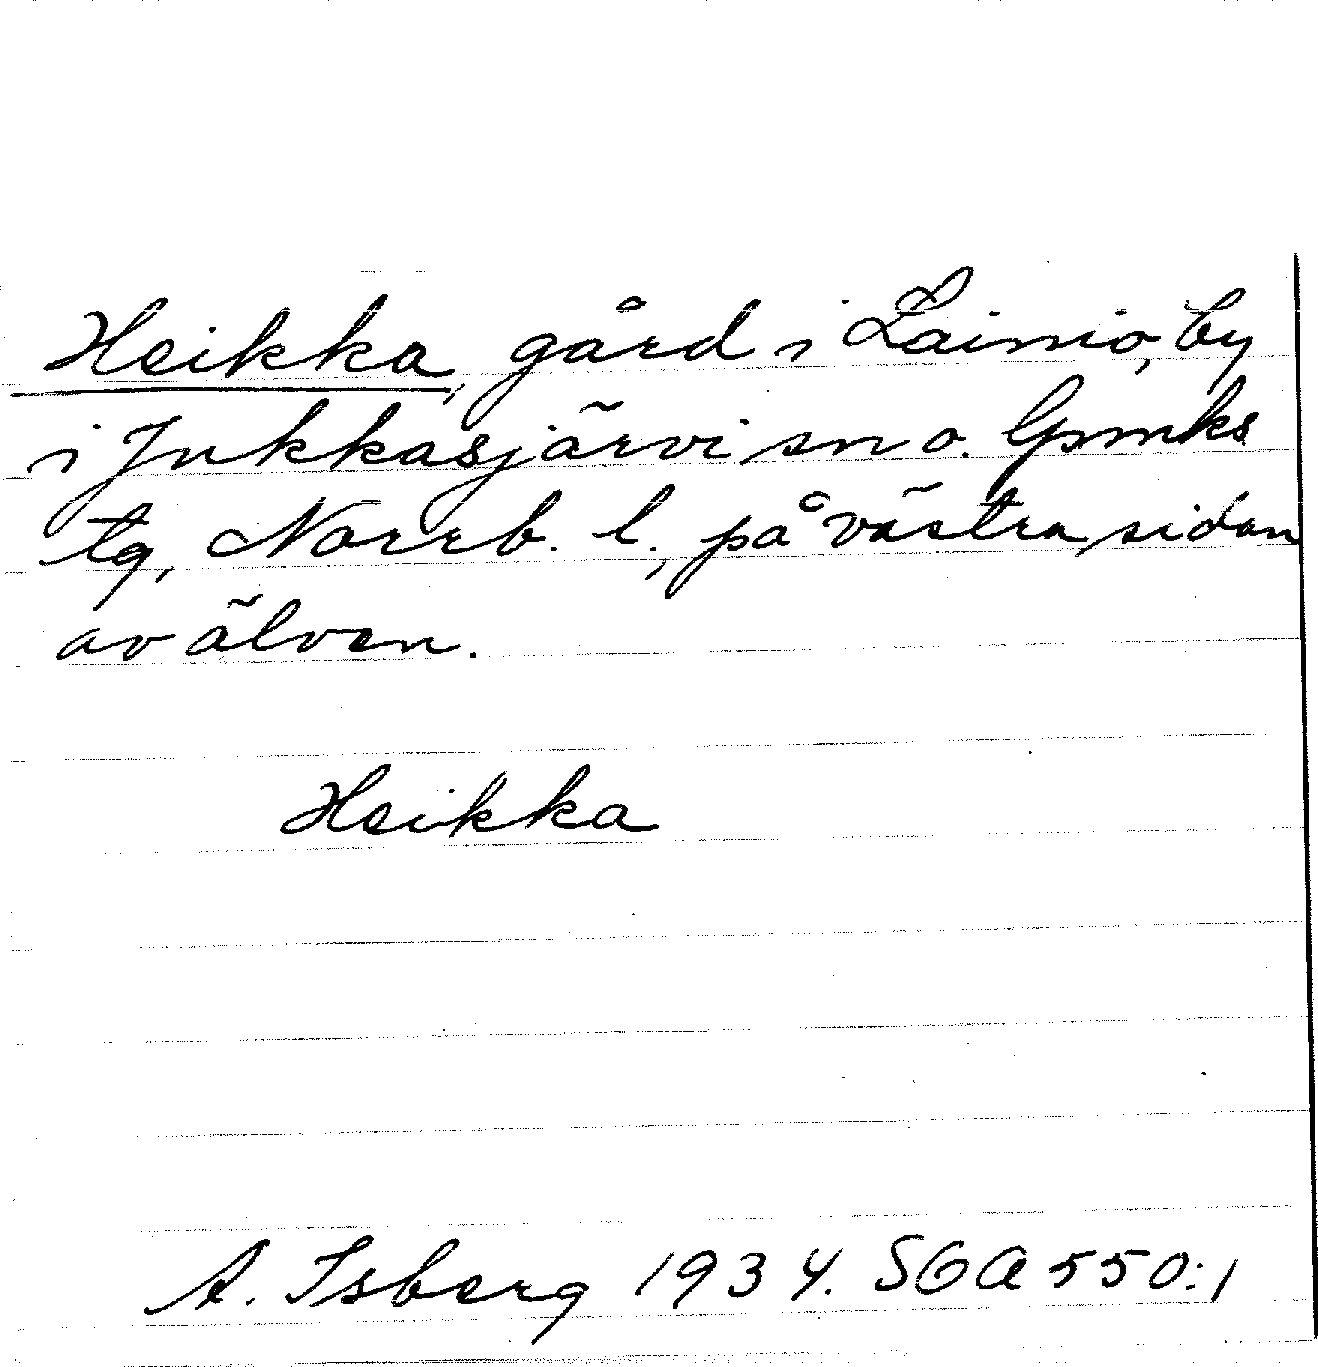 Heikka, gård i Lainio, by
i Jukkasjärvi sn o. lpmks
tg, Norrb. l., på västra sidan
av älven.
Heikka
A. Isberg 1934. SOA 550:1